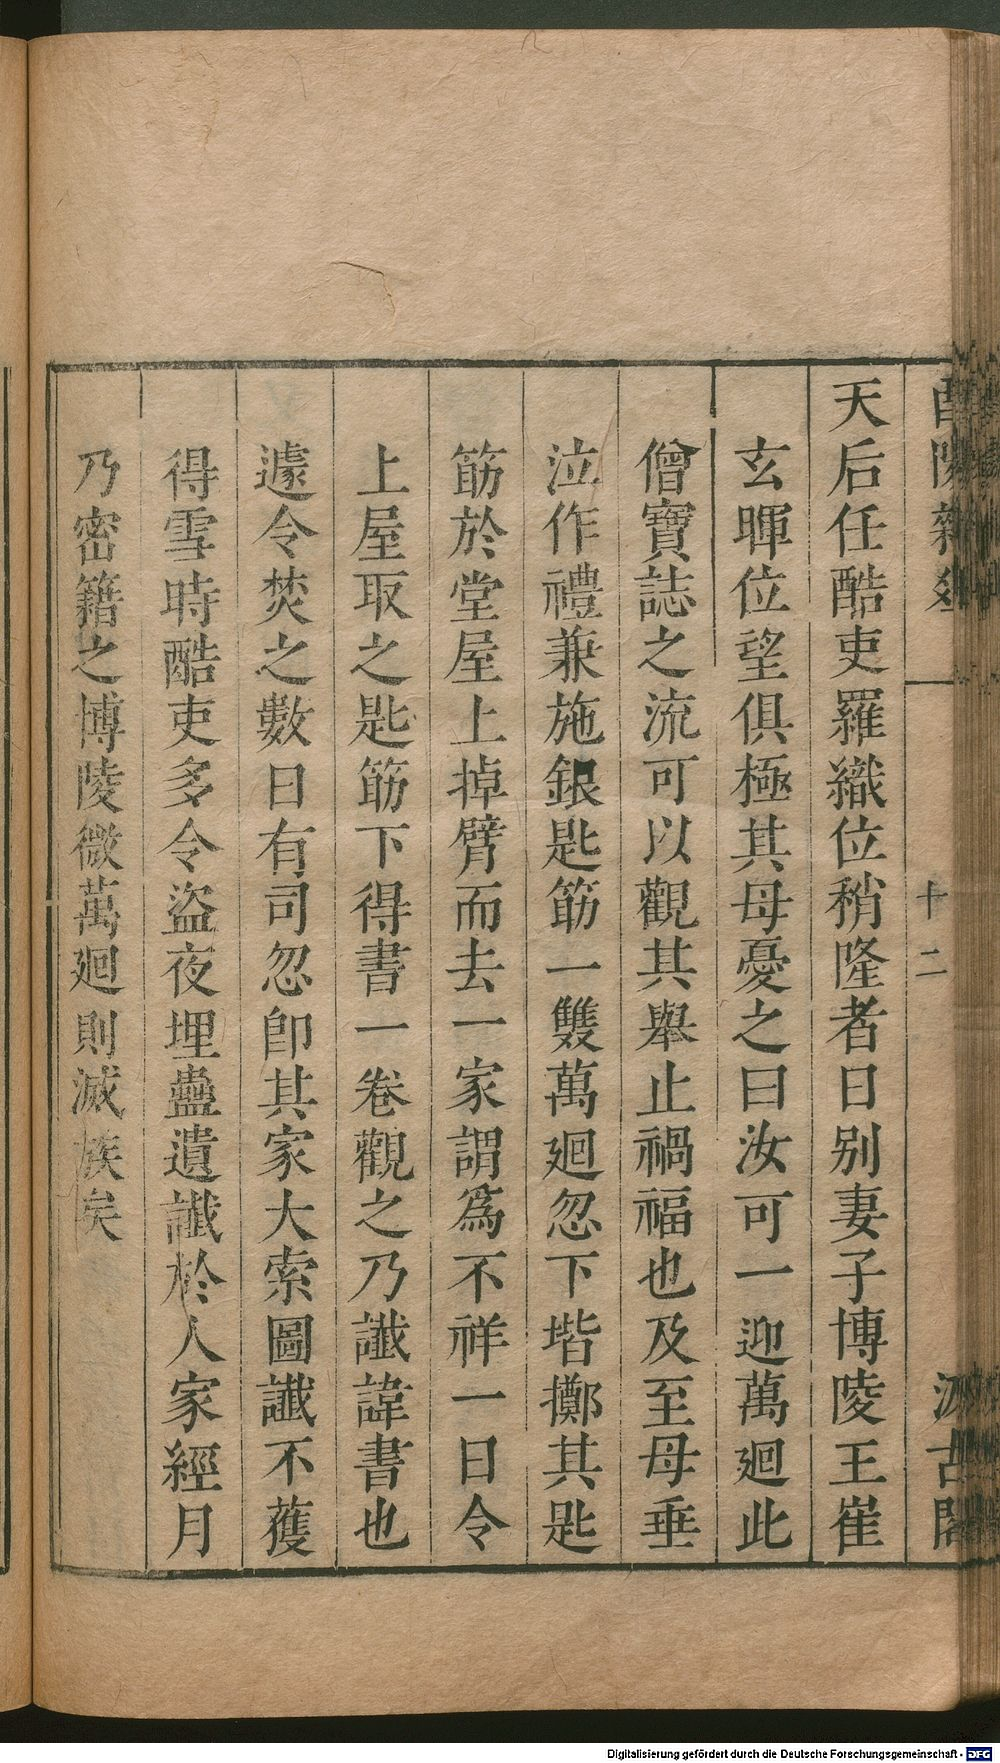 酉陽雜俎
十二
汲古閣
天后任酷吏羅織位稍隆者日別妻子博陵王崔
玄暉位望俱極其母憂之曰汝可一迎萬迴此
僧寶誌之流可以觀其舉止禍福也及至母垂
泣作禮兼施銀匙筯一雙萬迴忽下堦擲其匙
筯於堂屋上掉臂而去一家謂爲不祥一日令
上屋取之匙筯下得書一卷觀之乃讖諱書也
遽令焚之數日有司忽卽其家大索圖讖不獲
得雪時酷吏多令盜夜埋蠱遺讖於人家經月
乃密籍之博陵微萬迴則滅族矣
Digitalisierung gefördert durch die Deutsche Forschungsgemeinschaft - DFG